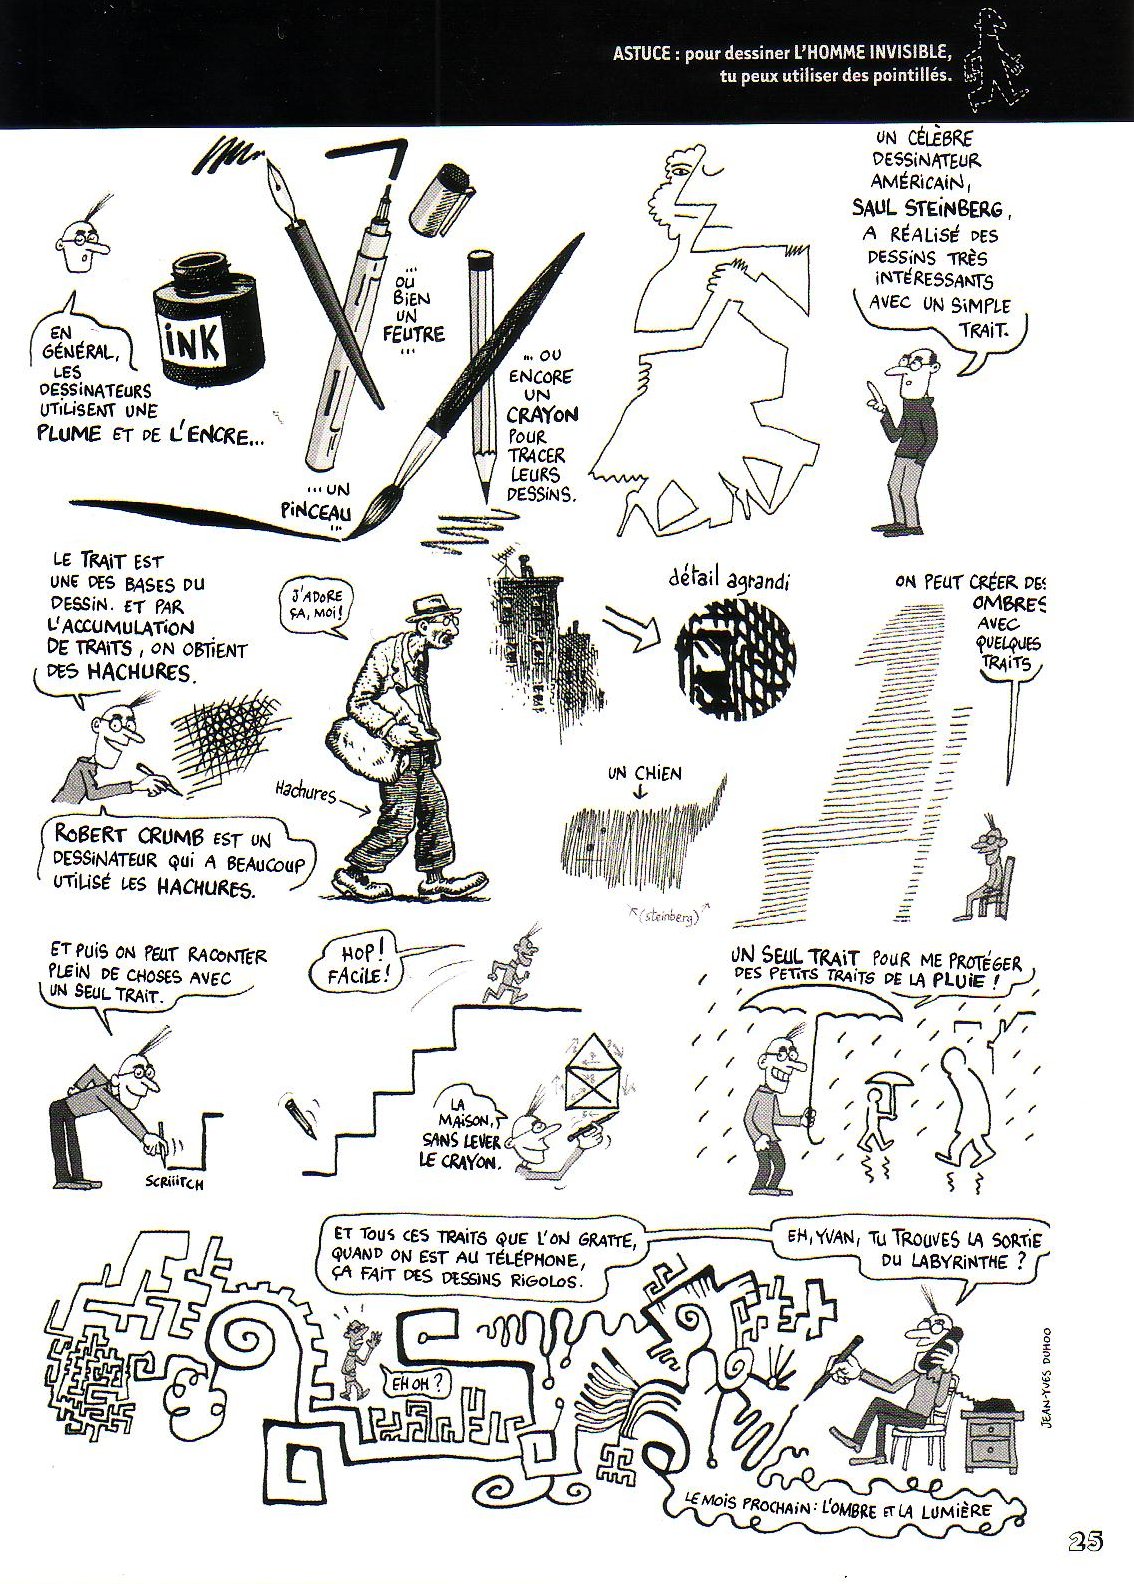 ASTUCE : pour dessiner L'HOMME INVISIBLE,
tu peux utiliser des pointillés.
EN
GÉNÉRAL,
LES
DESSINATEURS
UTILISENT UNE
PLUME ET DE L'ENCRE...
INK
...
OU
BIEN
UN
FEUTRE
...
... UN
PINCEAU
...
... OU
ENCORE
UN
CRAYON
POUR
TRACER
LEURS
DESSINS.
UN CÉLÈBRE
DESSINATEUR
AMÉRICAIN,
SAUL STEINBERG,
A RÉALISÉ DES
DESSINS TRÈS
INTÉRESSANTS
AVEC UN SIMPLE
TRAIT.
LE TRAIT EST
UNE DES BASES DU
DESSIN. ET PAR
L'ACCUMULATION
DE TRAITS, ON OBTIENT
DES HACHURES.
J'ADORE
ÇA, MOI!
Hachures
ROBERT CRUMB EST UN
DESSINATEUR QUI A BEAUCOUP
UTILISÉ LES HACHURES.
détail agrandi
UN CHIEN
(steinberg)
ON PEUT CRÉER DES
OMBRES
AVEC
QUELQUES
TRAITS
ET PUIS ON PEUT RACONTER
PLEIN DE CHOSES AVEC
UN SEUL TRAIT.
SCRIIITCH
HOP!
FACILE!
LA
MAISON,
SANS LEVER
LE CRAYON.
UN SEUL TRAIT POUR ME PROTÉGER
DES PETITS TRAITS DE LA PLUIE !
ET TOUS CES TRAITS QUE L'ON GRATTE,
QUAND ON EST AU TÉLÉPHONE,
ÇA FAIT DES DESSINS RIGOLOS.
EH, YVAN, TU TROUVES LA SORTIE
DU LABYRINTHE ?
EH OH ?
JEAN-YVES DUHOO
LE MOIS PROCHAIN : L'OMBRE ET LA LUMIÈRE
25